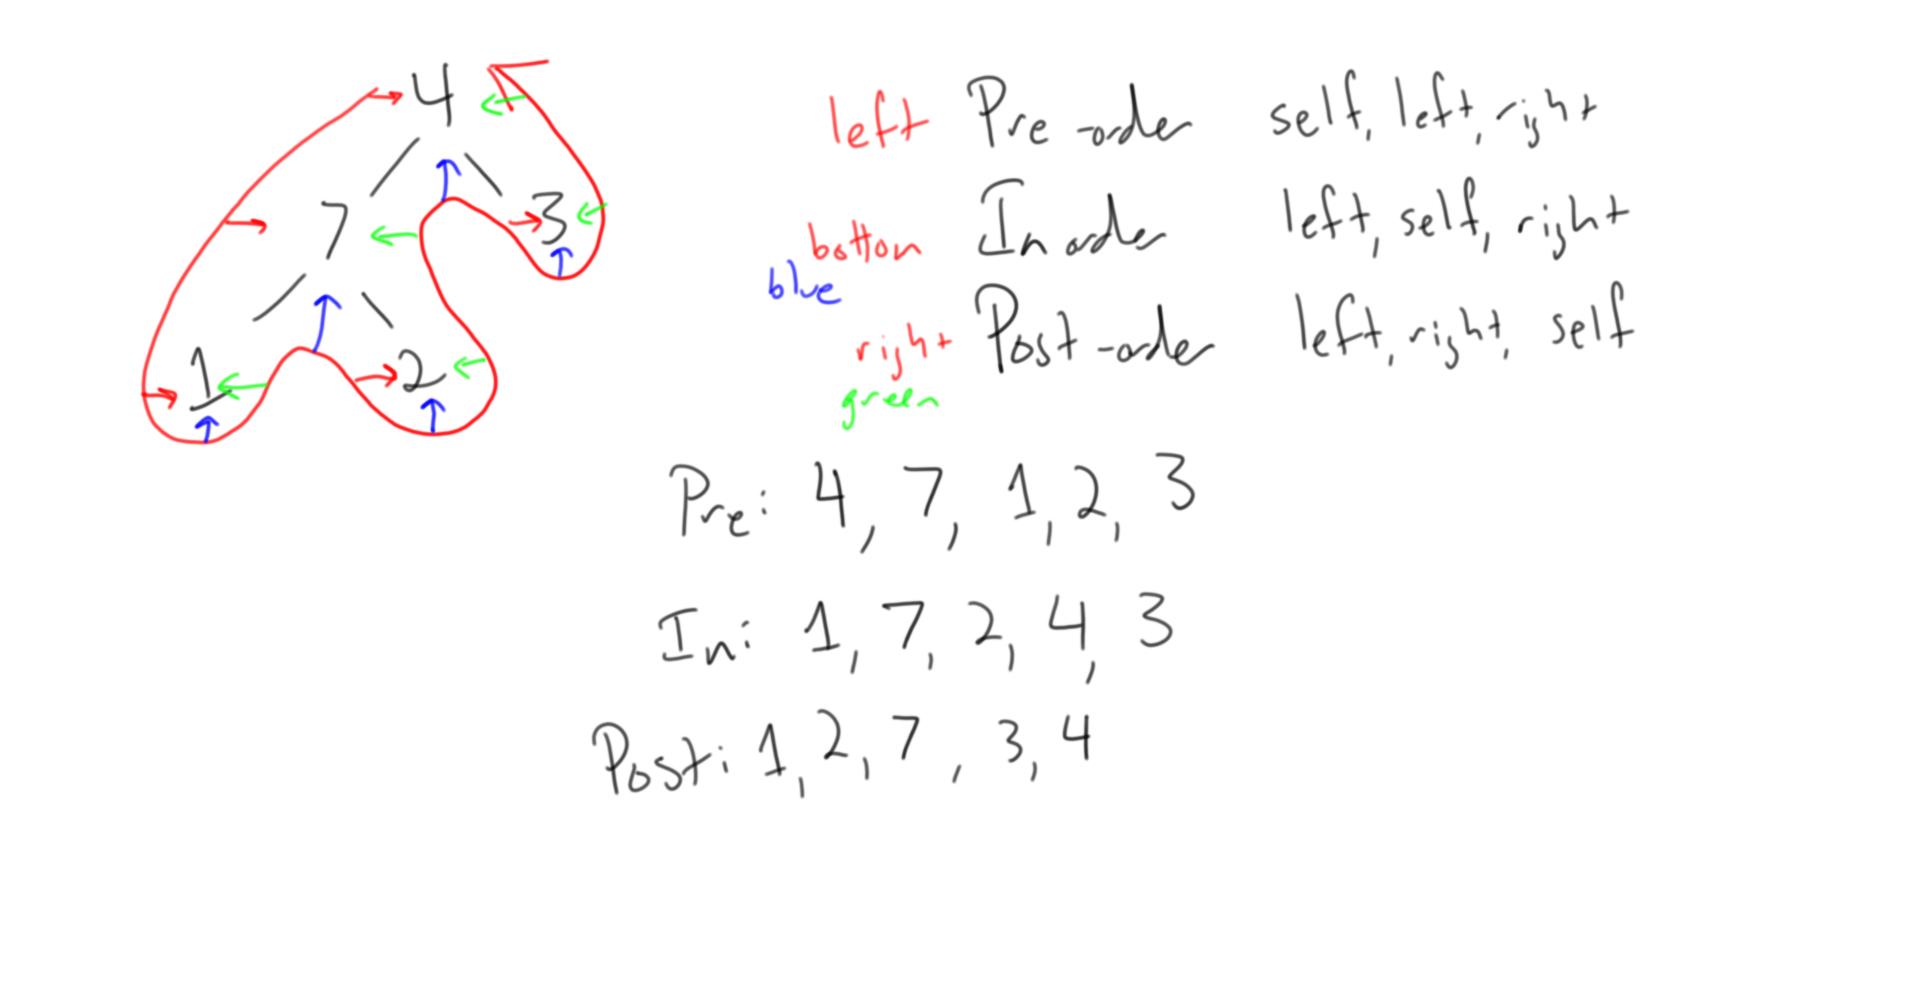 4
7 3
1 2
left Pre-order self, left, right
bottom In order left, self, right
blue
right Post-order left, right, self
green
Pre: 4, 7, 1, 2, 3
In: 1, 7, 2, 4, 3
Post: 1, 2, 7, 3, 4